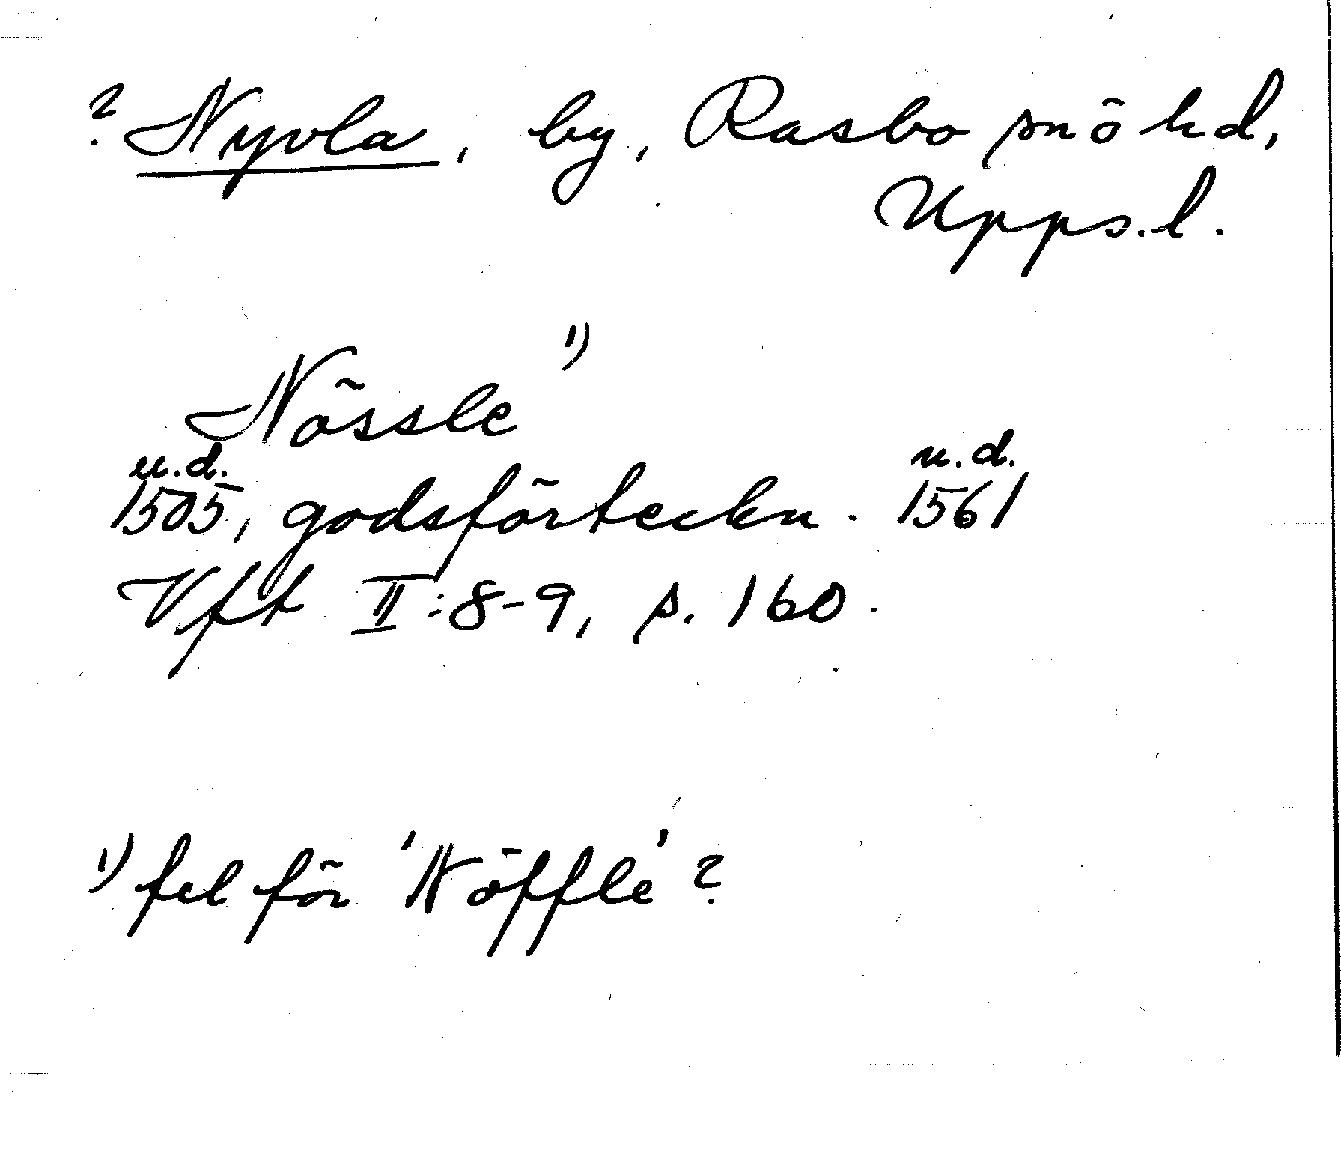 ? Nyvla, by, Rasbo sn ö hd,
Upps.l.
Nössle 1)
u.d. u.d.
1505, godsförteckn. 1561
Vft II:8-9, s. 160.
1) fel för 'Nöffle'?